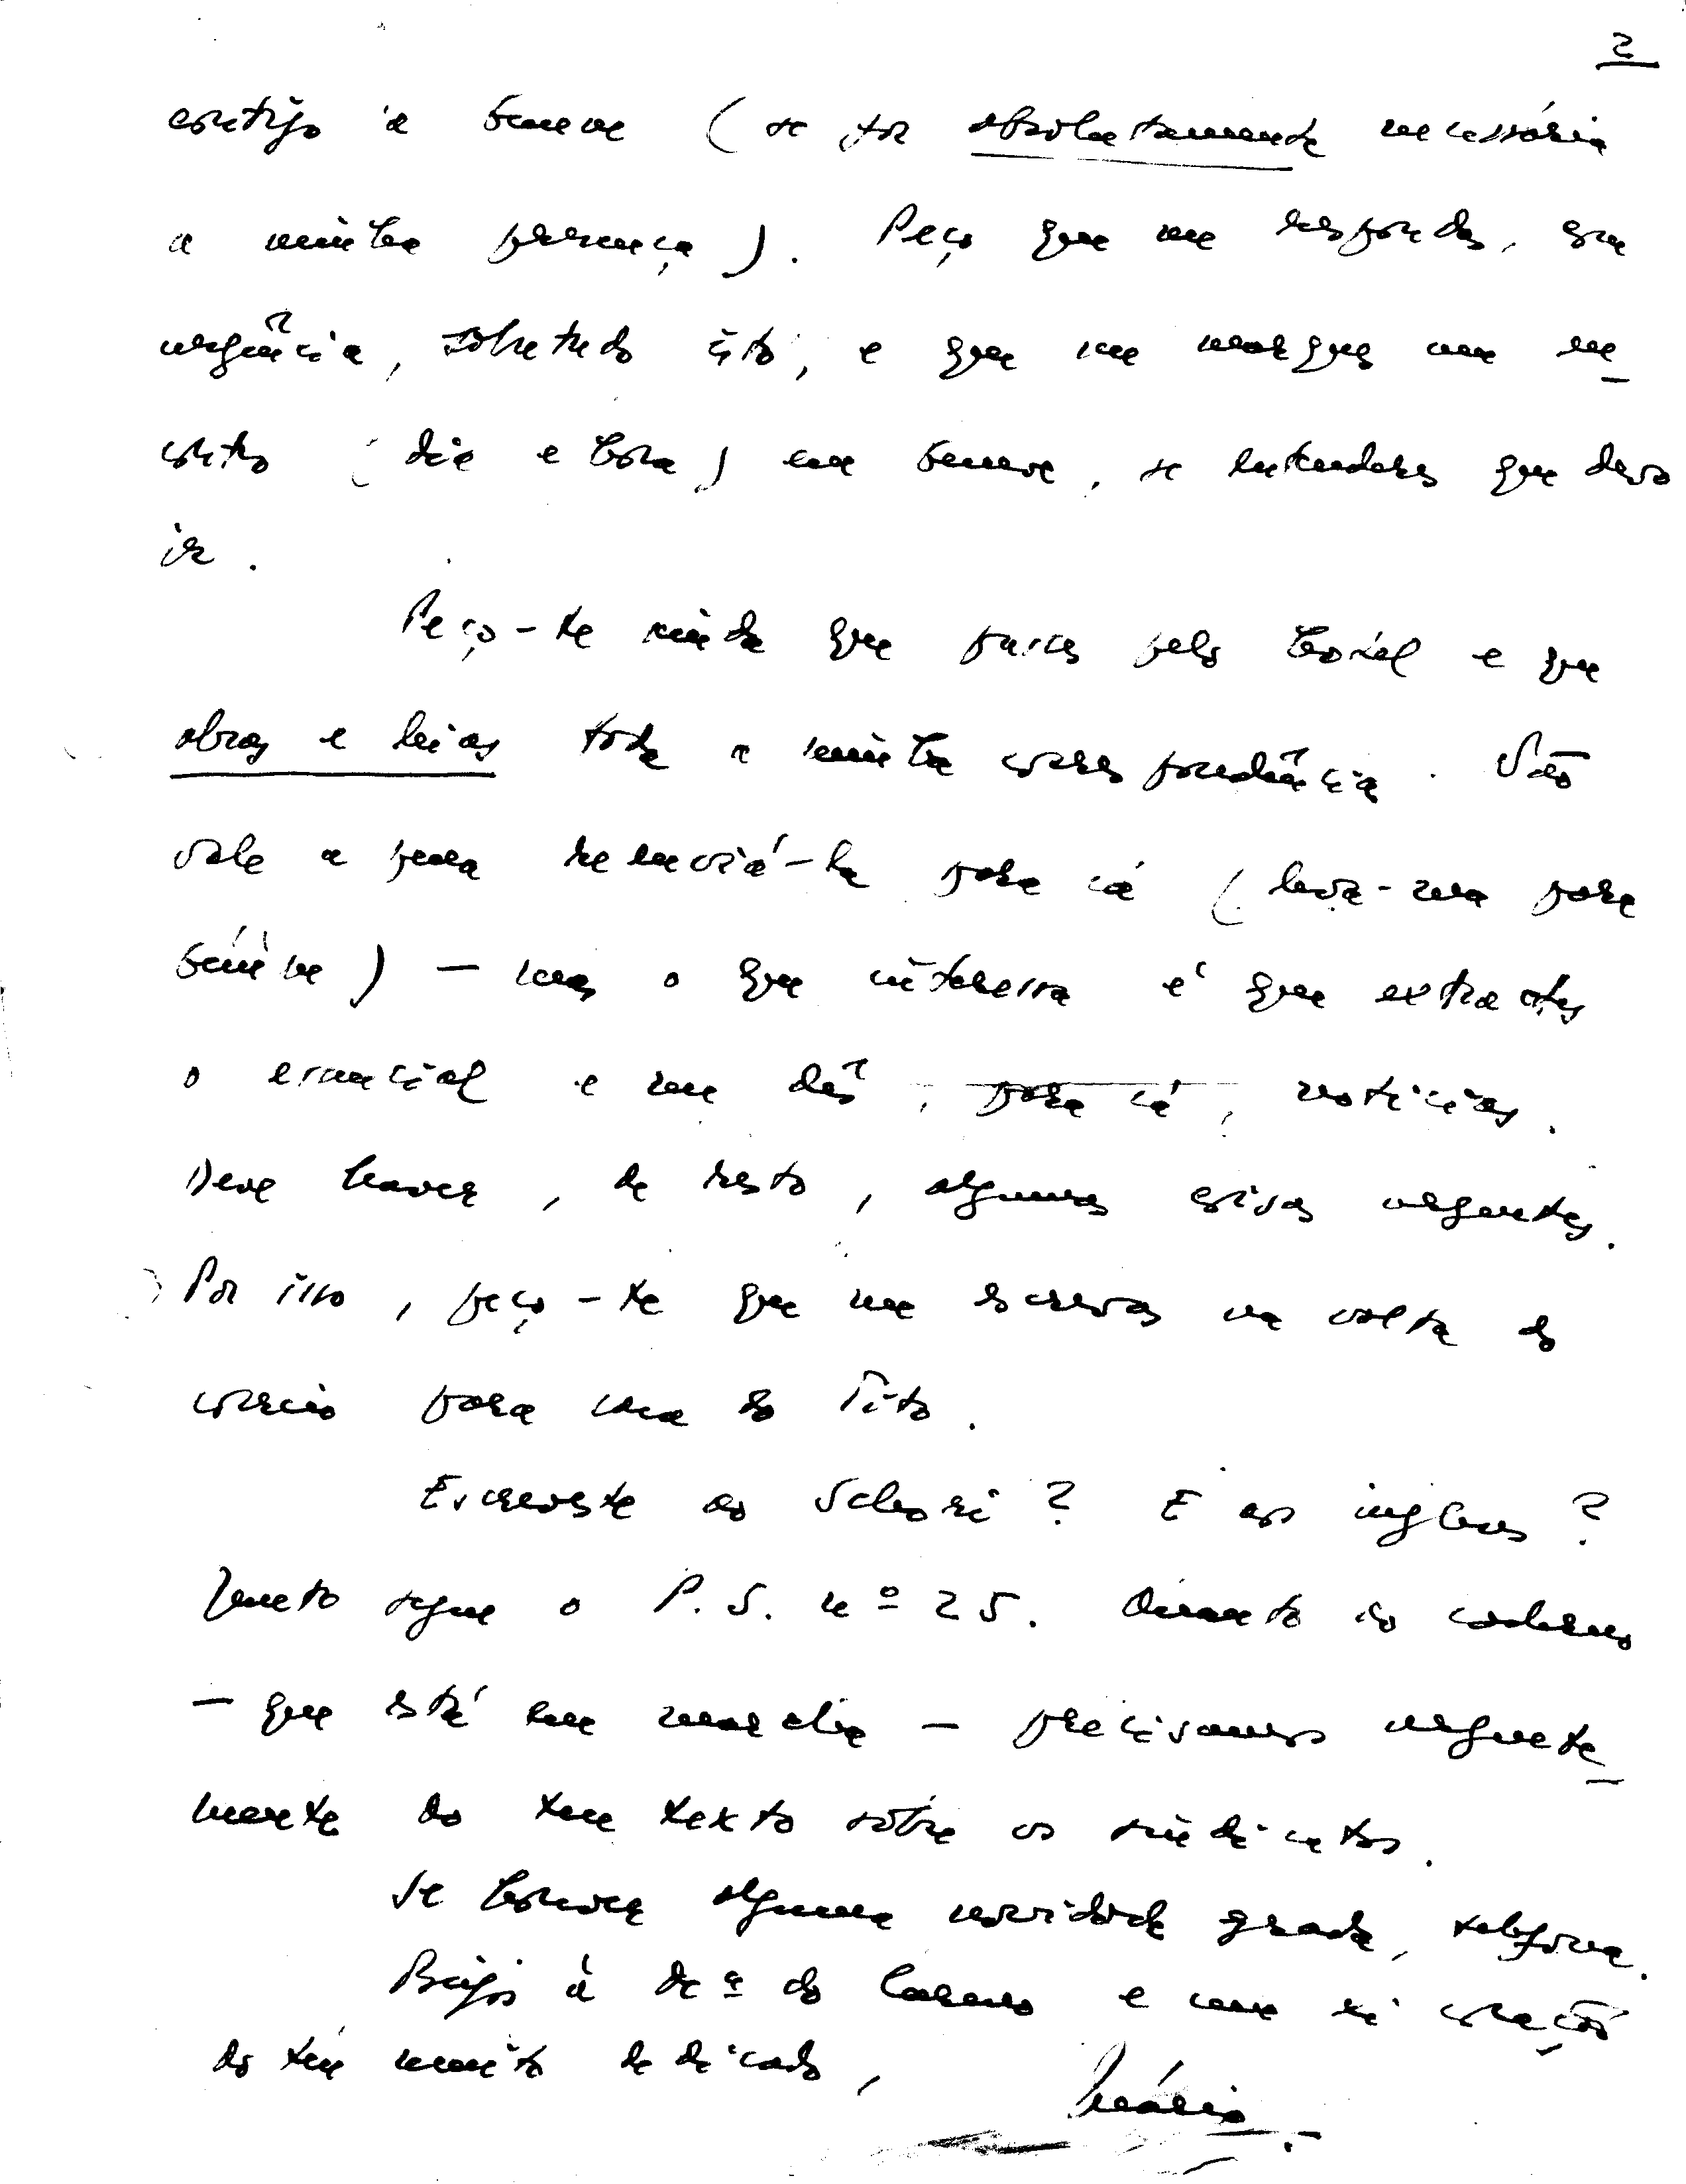 2
contigo a Genève (se for absolutamente necessária
a minha presença). Peço que me respondas, com
urgência, sobretudo isto, e que me marques um en-
contro (dia e hora) em Genève, se entenderes que devo
ir.
Peço-te ainda que passes pelo hotel e que
abras e leias toda a minha correspondência. Não
vale a pena reenviá-la para cá (leva-ma para
Genève) — mas o que interessa é que extractes
o essencial e me dês, para cá, notícias.
Deve haver, de resto, algumas coisas urgentes.
Por isso, peço-te que me escrevas na volta do
correio para casa do Tito.
Escreveste ao Schori? E aos ingleses?
Junto segue o P.S. nº 25. Quanto ao caderno
— que está em marcha — precisamos urgente-
mente do teu texto sobre os sindicatos.
Se houver alguma novidade grada, telefona.
Beijos à de do Carmo e um xi coração
do teu muito dedicado,
Mário.